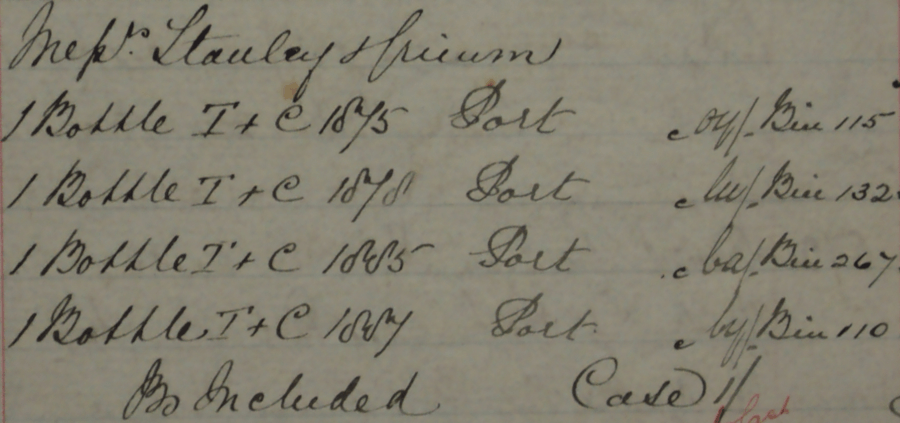 Messrs. Stanley &
1 Bottle T + C 1875 Port c oy/- Bin 115
1 Bottle T + C 1878 Port c lu/- Bin 132
1 Bottle T + C 1885 Port c ba/- Bin 267
1 Bottle T + C 1887 Port c by/- Bin 110
Bs Included Case 1/